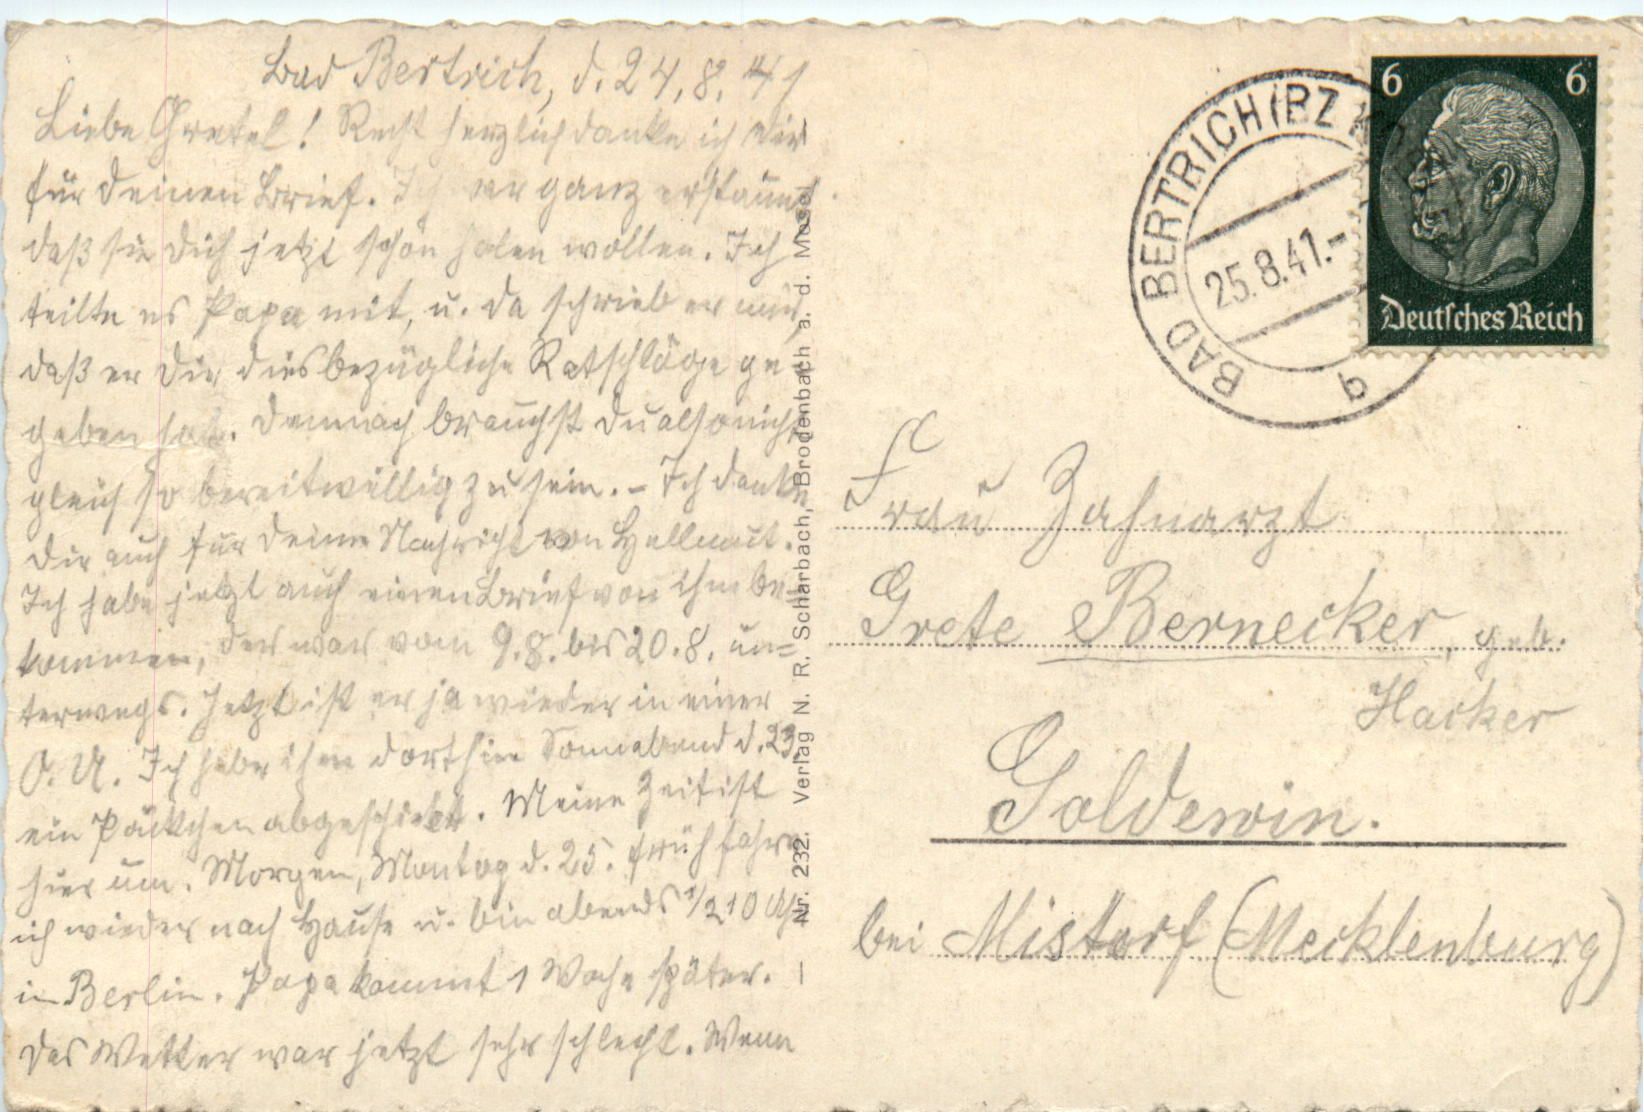 Bad Bertrich, d. 24.8.41
Liebe Gretel! Recht herzlich danke ich Dir
für Deinen Brief. Ich war ganz erstaunt
daß sie Dich jetzt schon holen wollen. Ich
teilte es Papa mit, u. da schrieb er mir,
daß er Dir diesbezügliche Ratschläge ge-
geben hab. Demnach brauchst Du also nicht
gleich so bereitwillig zu sein. – Ich danke
Dir auch für Deine Nachricht von Hellmut.
Ich habe jetzt auch einen Brief von ihm be=
kommen, der war vom 9.8. bis 20.8. un=
terwegs. Jetzt ist er ja wieder in einer
O. U. Ich habe ihm dorthin Sonnabend d. 23.
ein Päckchen abgeschickt. Meine Zeit ist
hier um. Morgen, Montag d. 25. früh fahre
ich wieder nach Hause u. bin abends 1/2 10 Uhr
in Berlin. Papa kommt 1 Woche später. –
Das Wetter war jetzt sehr schlecht. Wenn
Nr. 232. Verlag N. R. Scharbach, Brodenbach a. d. Mosel
BAD BERTRICH (BZ
25.8.41.-
b
6 6
Deutsches Reich
Frau Zahnarzt
Grete Bernecker, geb.
Hacker
Goldewin.
bei Mistorf (Mecklenburg)